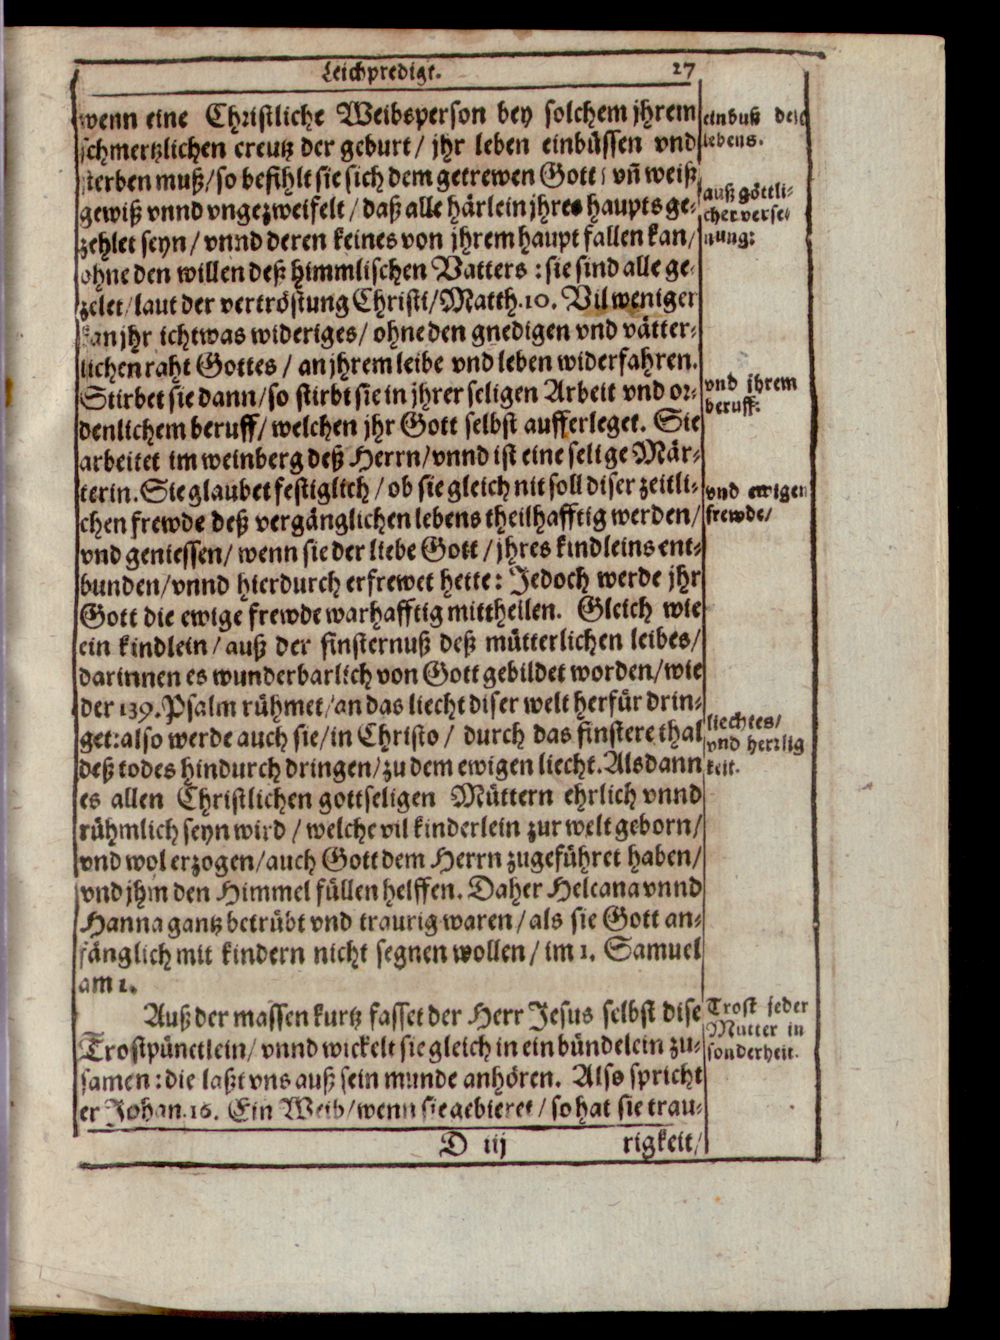 Leichpredigt. 27
wenn eine Christliche Weibsperson bey solchem jhrem
schmertzlichen creutz der geburt / jhr leben einbüssen vnd
sterben muß / so befihlt sie sich dem getrewen Gott / vñ weiß
gewiß vnnd vngezweifelt / daß alle härlein jhres haupts ge-
zehlet seyn / vnnd deren keines von jhrem haupt fallen kan /
ohne den willen deß himmlischen Vatters : sie sind alle ge-
zelet / laut der vertröstung Christi / Matth. 10. Vil weniger
kan jhr ichtwas wideriges / ohne den gnedigen vnd vätter-
lichen raht Gottes / an jhrem leibe vnd leben widerfahren.
Stirbet sie dann / so stirbt sie in jhrer seligen Arbeit vnd or-
denlichem beruff / welchen jhr Gott selbst aufferleget. Sie
arbeitet im weinberg deß Herrn / vnnd ist eine selige Mär-
terin. Sie glaubet festiglich / ob sie gleich nit soll diser zeitli-
chen frewde deß vergänglichen lebens theilhafftig werden /
vnd geniessen / wenn sie der liebe Gott / jhres kindleins ent-
bunden / vnnd hierdurch erfrewet hette : Jedoch werde jhr
Gott die ewige frewde warhafftig mittheilen. Gleich wie
ein kindlein / auß der finsternuß deß mütterlichen leibes /
darinnen es wunderbarlich von Gott gebildet worden / wie
der 139. Psalm rühmet / an das liecht diser welt herfür drin-
get: also werde auch sie / in Christo / durch das finstere thal
deß todes hindurch dringen / zu dem ewigen liecht. Alsdann
es allen Christlichen gottseligen Müttern ehrlich vnnd
rühmlich seyn wird / welche vil kinderlein zur welt geborn /
vnd wol erzogen / auch Gott dem Herrn zugeführet haben /
vnd jhm den Himmel füllen helffen. Daher Helcana vnnd
Hanna gantz betrübt vnd traurig waren / als sie Gott an-
fänglich mit kindern nicht segnen wollen / im 1. Samuel
am 1.
Auß der massen kurtz fasset der Herr Jesus selbst dise
Trostpünctlein / vnnd wickelt sie gleich in ein bündelein zu-
samen : die laßt vns auß sein munde anhören. Also spricht
er Johan. 16. Ein Weib / wenn sie gebieret / so hat sie trau-
D iij rigkeit /
einbuß deß
lebens.
auß göttli-
cher verse-
nung:
vnd jhrem
beruff:
vnd ewigen
frewde /
liechtes /
vnd herrlig
keit.
Trost jeder
Mutter in
sonderheit.